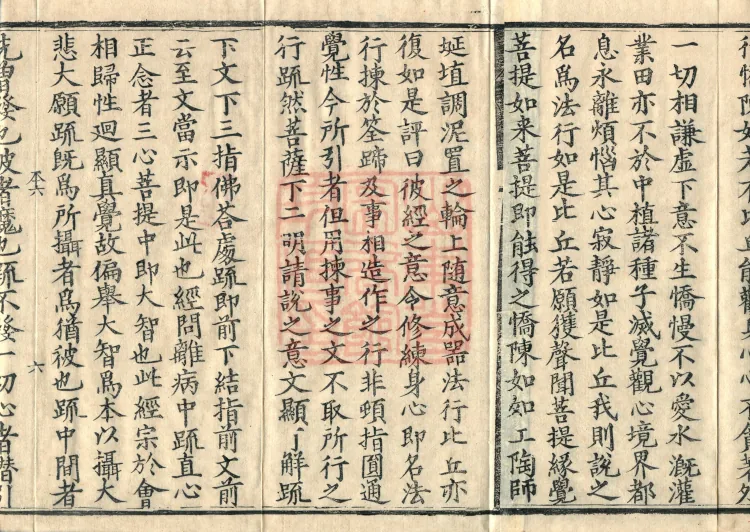 一切相謙虛下意不生憍慢不以愛水溉灌
業田亦不於中植諸種子滅覺觀心境界都
息永離煩惱其心寂靜如是比丘我則說之
名爲法行如是比丘若願獲聲聞菩提緣覺
菩提如来菩提即能得之憍陳如如工陶師
埏埴調泥置之輪上随意成器法行比丘亦
復如是評曰彼經之意令修練身心即名法
行揀於筌蹄及事相造作之行非頓指圓通
覺性今所引者但用揀事之文不取所行之
行䟽然菩薩下二明請說之意文顯了解䟽
下文下三指佛荅處䟽即前下結指前文前
云至文當示即是此也經問離病中䟽直心
正念者三心菩提中即大智也此經宗於會
相歸性迴顯真覺故偏舉大智爲本以攝大
悲大願䟽既爲所攝者爲猶彼也䟽中間者
六